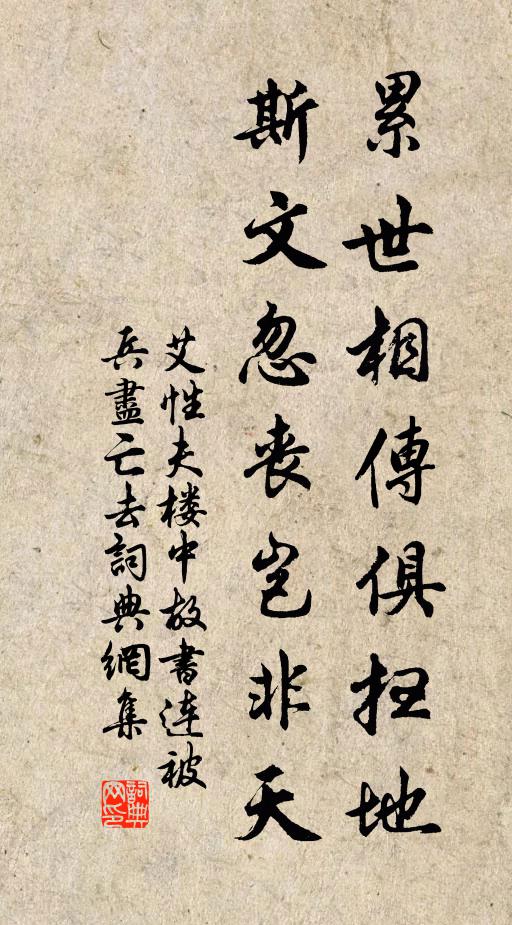 累世相傳俱扫地
斯文忽丧岂非天
艾性夫楼中故書连被
兵盡亡去詞典網集
詞典网印